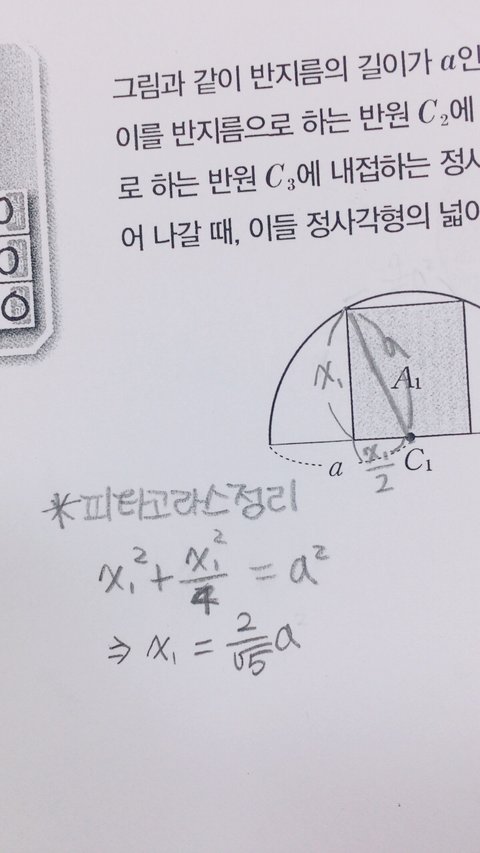 그림과 같이 반지름의 길이가 a인
이를 반지름으로 하는 반원 C₂에
로 하는 반원 C₃에 내접하는 정사
어 나갈 때, 이들 정사각형의 넓이
x₁
a
A₁
a
x₁/2
C₁
*피타고라스정리
x₁² + x₁²/4 = a²
⇒ x₁ = 2/√5 a